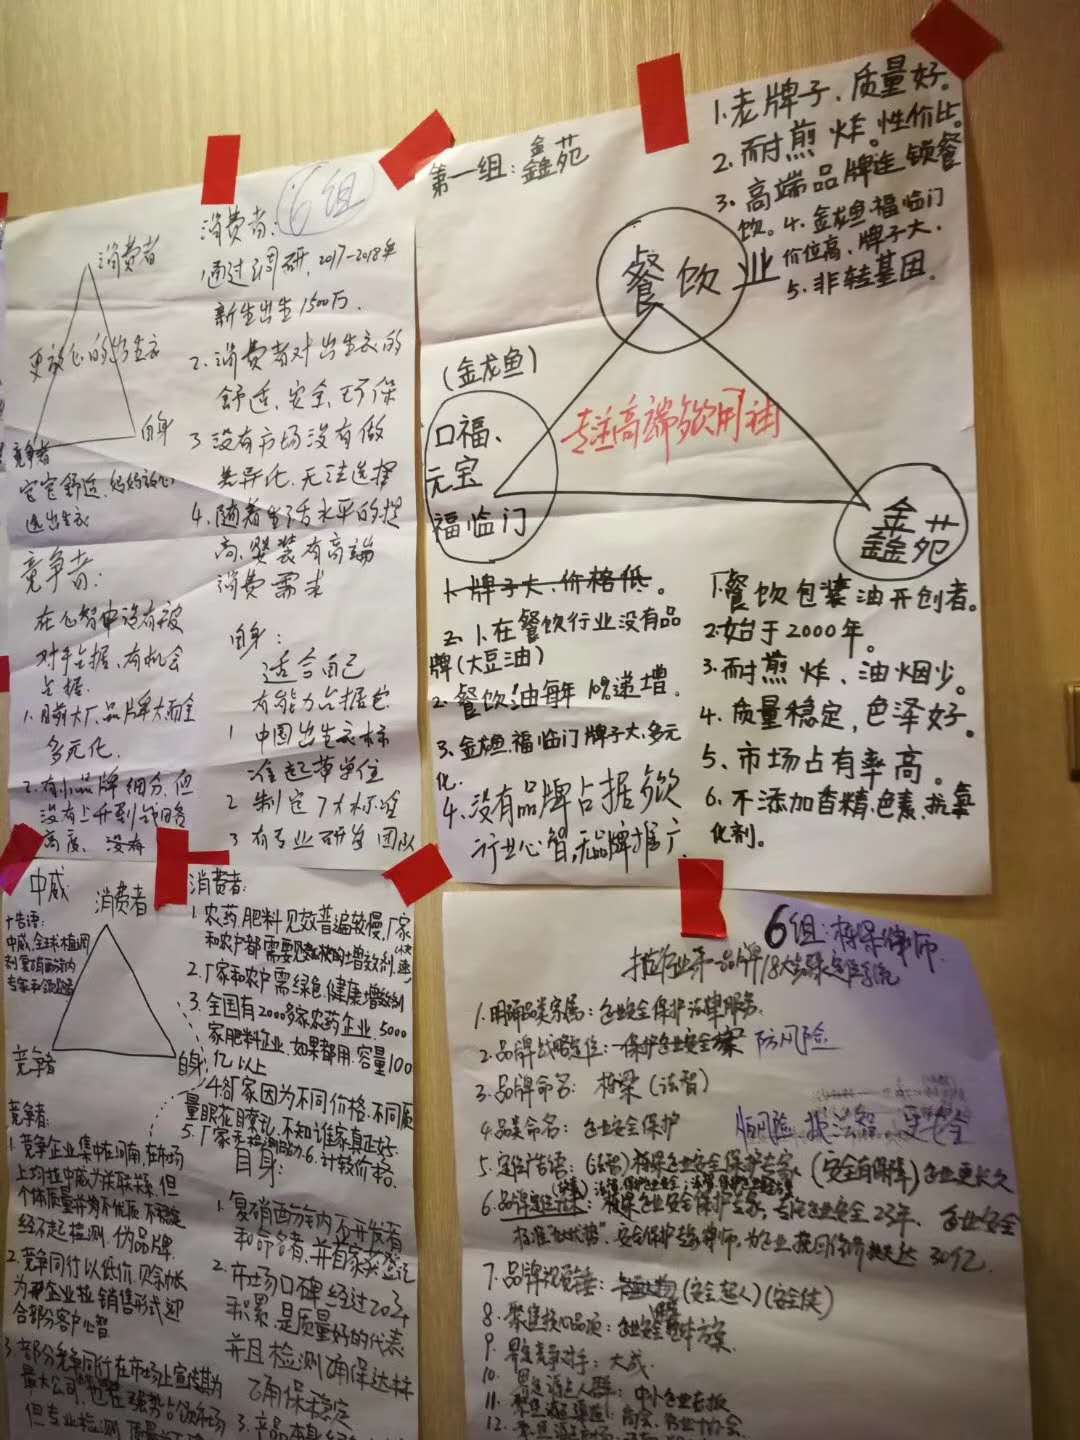 6组
消费者:
1.通过调研,2017-2018年
新生出生1500万.
2.消费者对出生衣的
舒适、安全、环保
3 没有市场没有做
差异化,无法选择
4.随着生活水平的提
高,婴装有高端
消费需求
消费者
更放心的出生衣
竞争者
自身
宝宝舒适,妈妈放心
选出生衣
竞争者:
在心智中没有被
对手占据、有机会
占据.
1.目前大厂,品牌大而全
多元化.
2.有小品牌细分,但
没有上升到战略
高度、没有
自身:
适合自己
有能力占据它
1 中国出生衣标
准起草单位
2 制定7大标准
3 有专业研发团队
第一组:金鑫苑
1.老牌子、质量好。
2.耐煎炸。性价比。
3.高端品牌连锁餐
饮。4.金龙鱼.福临门
价位高、牌子大.
5.非转基因.
餐饮业
(金龙鱼)
口福、
元宝
福临门
专注高端餐饮用油
金鑫苑
1.牌子大、价格低。
2.1.在餐饮行业没有品
牌(大豆油)
2.餐饮油每年10%递增.
3.金龙鱼,福临门牌子大,多元
化.
4.没有品牌占据餐饮
行业心智,无品牌推广.
1.餐饮包装油开创者。
2.始于2000年。
3.耐煎炸、油烟少。
4.质量稳定,色泽好。
5、市场占有率高。
6.不添加香精,色素,抗氧
化剂。
中威
消费者
广告语:
中威,全球植调
剂复硝酚钠
专家和领跑者
竞争者
自身
消费者:
1.农药、肥料见效普遍较慢,厂家
和农户都需要见效快的增效剂.
2.厂家和农户需绿色、健康增效剂
3.全国有2000多家农药企业,5000
家肥料企业.如果都用.容量100
亿以上
4.各厂家因为不同价格、不同质
量眼花目缭乱,不知谁家真正好.
5.厂家无检测能力.6.计较价格.
竞争者:
1.竞争企业集中在河南,在市场
上均拉中威为关联关系,但
个体质量并为不优质,不稳定
经不起检测,伪品牌.
2.竞争同行以低价,贝余帐
为企业拉销售形式迎
合部分客户心智
3.部分竞争同行在市场上宣传其为
最大公司,也在强势占领市场
但专业检测
自身:
1.复硝酚钠开发者
和命名者,并首家获登记
2.市场口碑经过20年
积累,是质量好的代表
并且检测确保达标
确保稳定
3.产品
6组:栋梁律师
1.明确品类家属:企业安全保护法律服务.
2.品牌战略定位:保护企业安全 防风险
3.品牌命名: 栋梁(法智)
4.品类命名: 企业安全保护
防风险,找法智 更安全
5.定位广告语:(法智)栋梁企业安全保护专家(安全有保障)企业更长久
6.品牌定位:栋梁企业安全保护专家,专注企业安全23年,企业安全
标准,安全保护专家律师,为企业挽回价值达30亿.
7.品牌视觉锤: (安全超人)(安全侠)
8.聚焦核心品项:企业安全整体方案.
9.界定竞争对手:大成.
10.界定源点人群:中小企业老板
11.聚焦源点渠道:商会、行业协会
12.